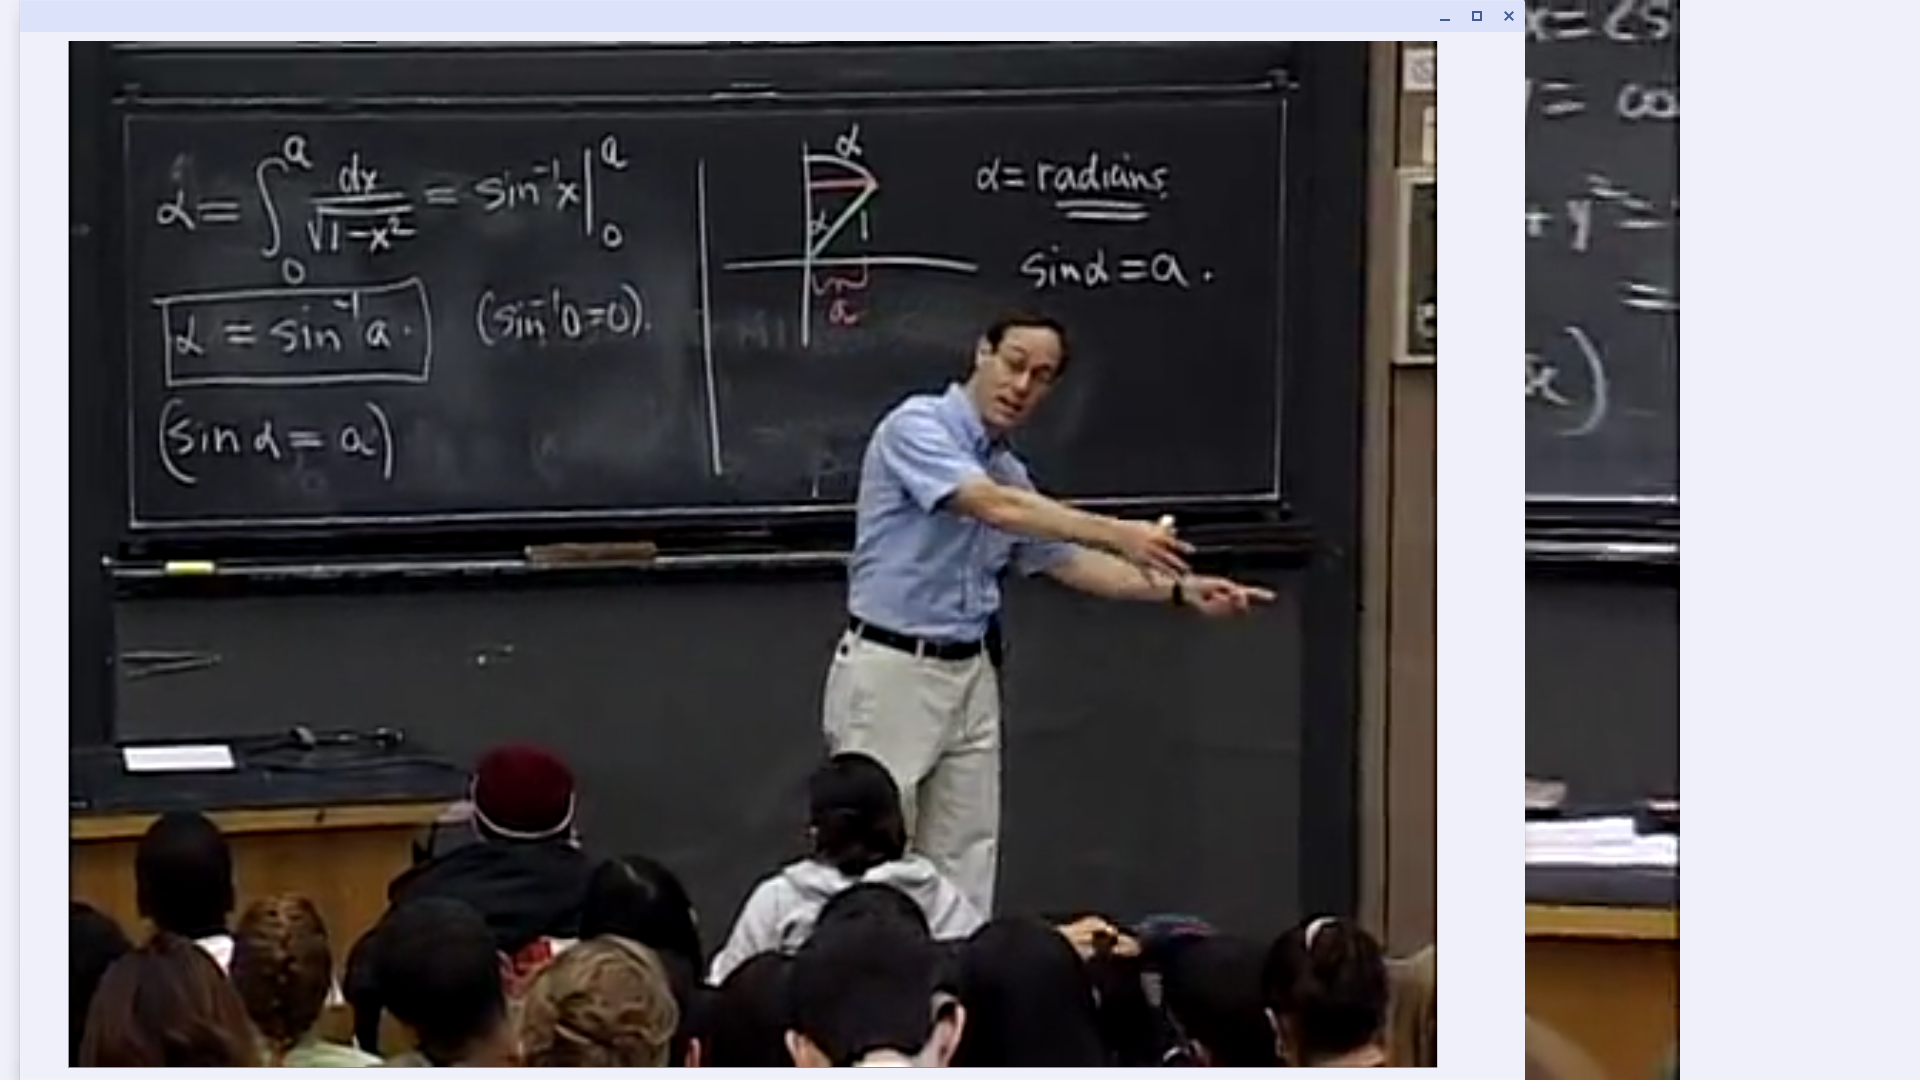 α = ∫₀ᵃ dx/√(1-x²) = sin⁻¹x |₀ᵃ
α = sin⁻¹a.
(sin⁻¹0=0).
(sin α = a)
α
α
1
a
α= radians
sinα=a.
y²=